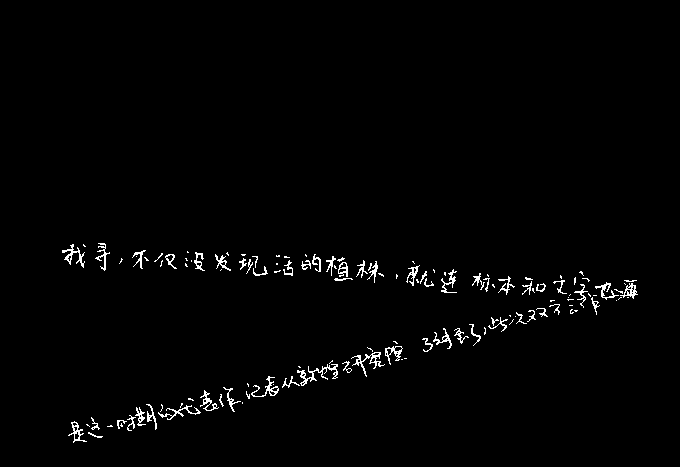 找寻,不仅没发现活的植株,就连标本和文字也
是这一时期的代表作 记者从敦煌研究院 了到了此次双方合作